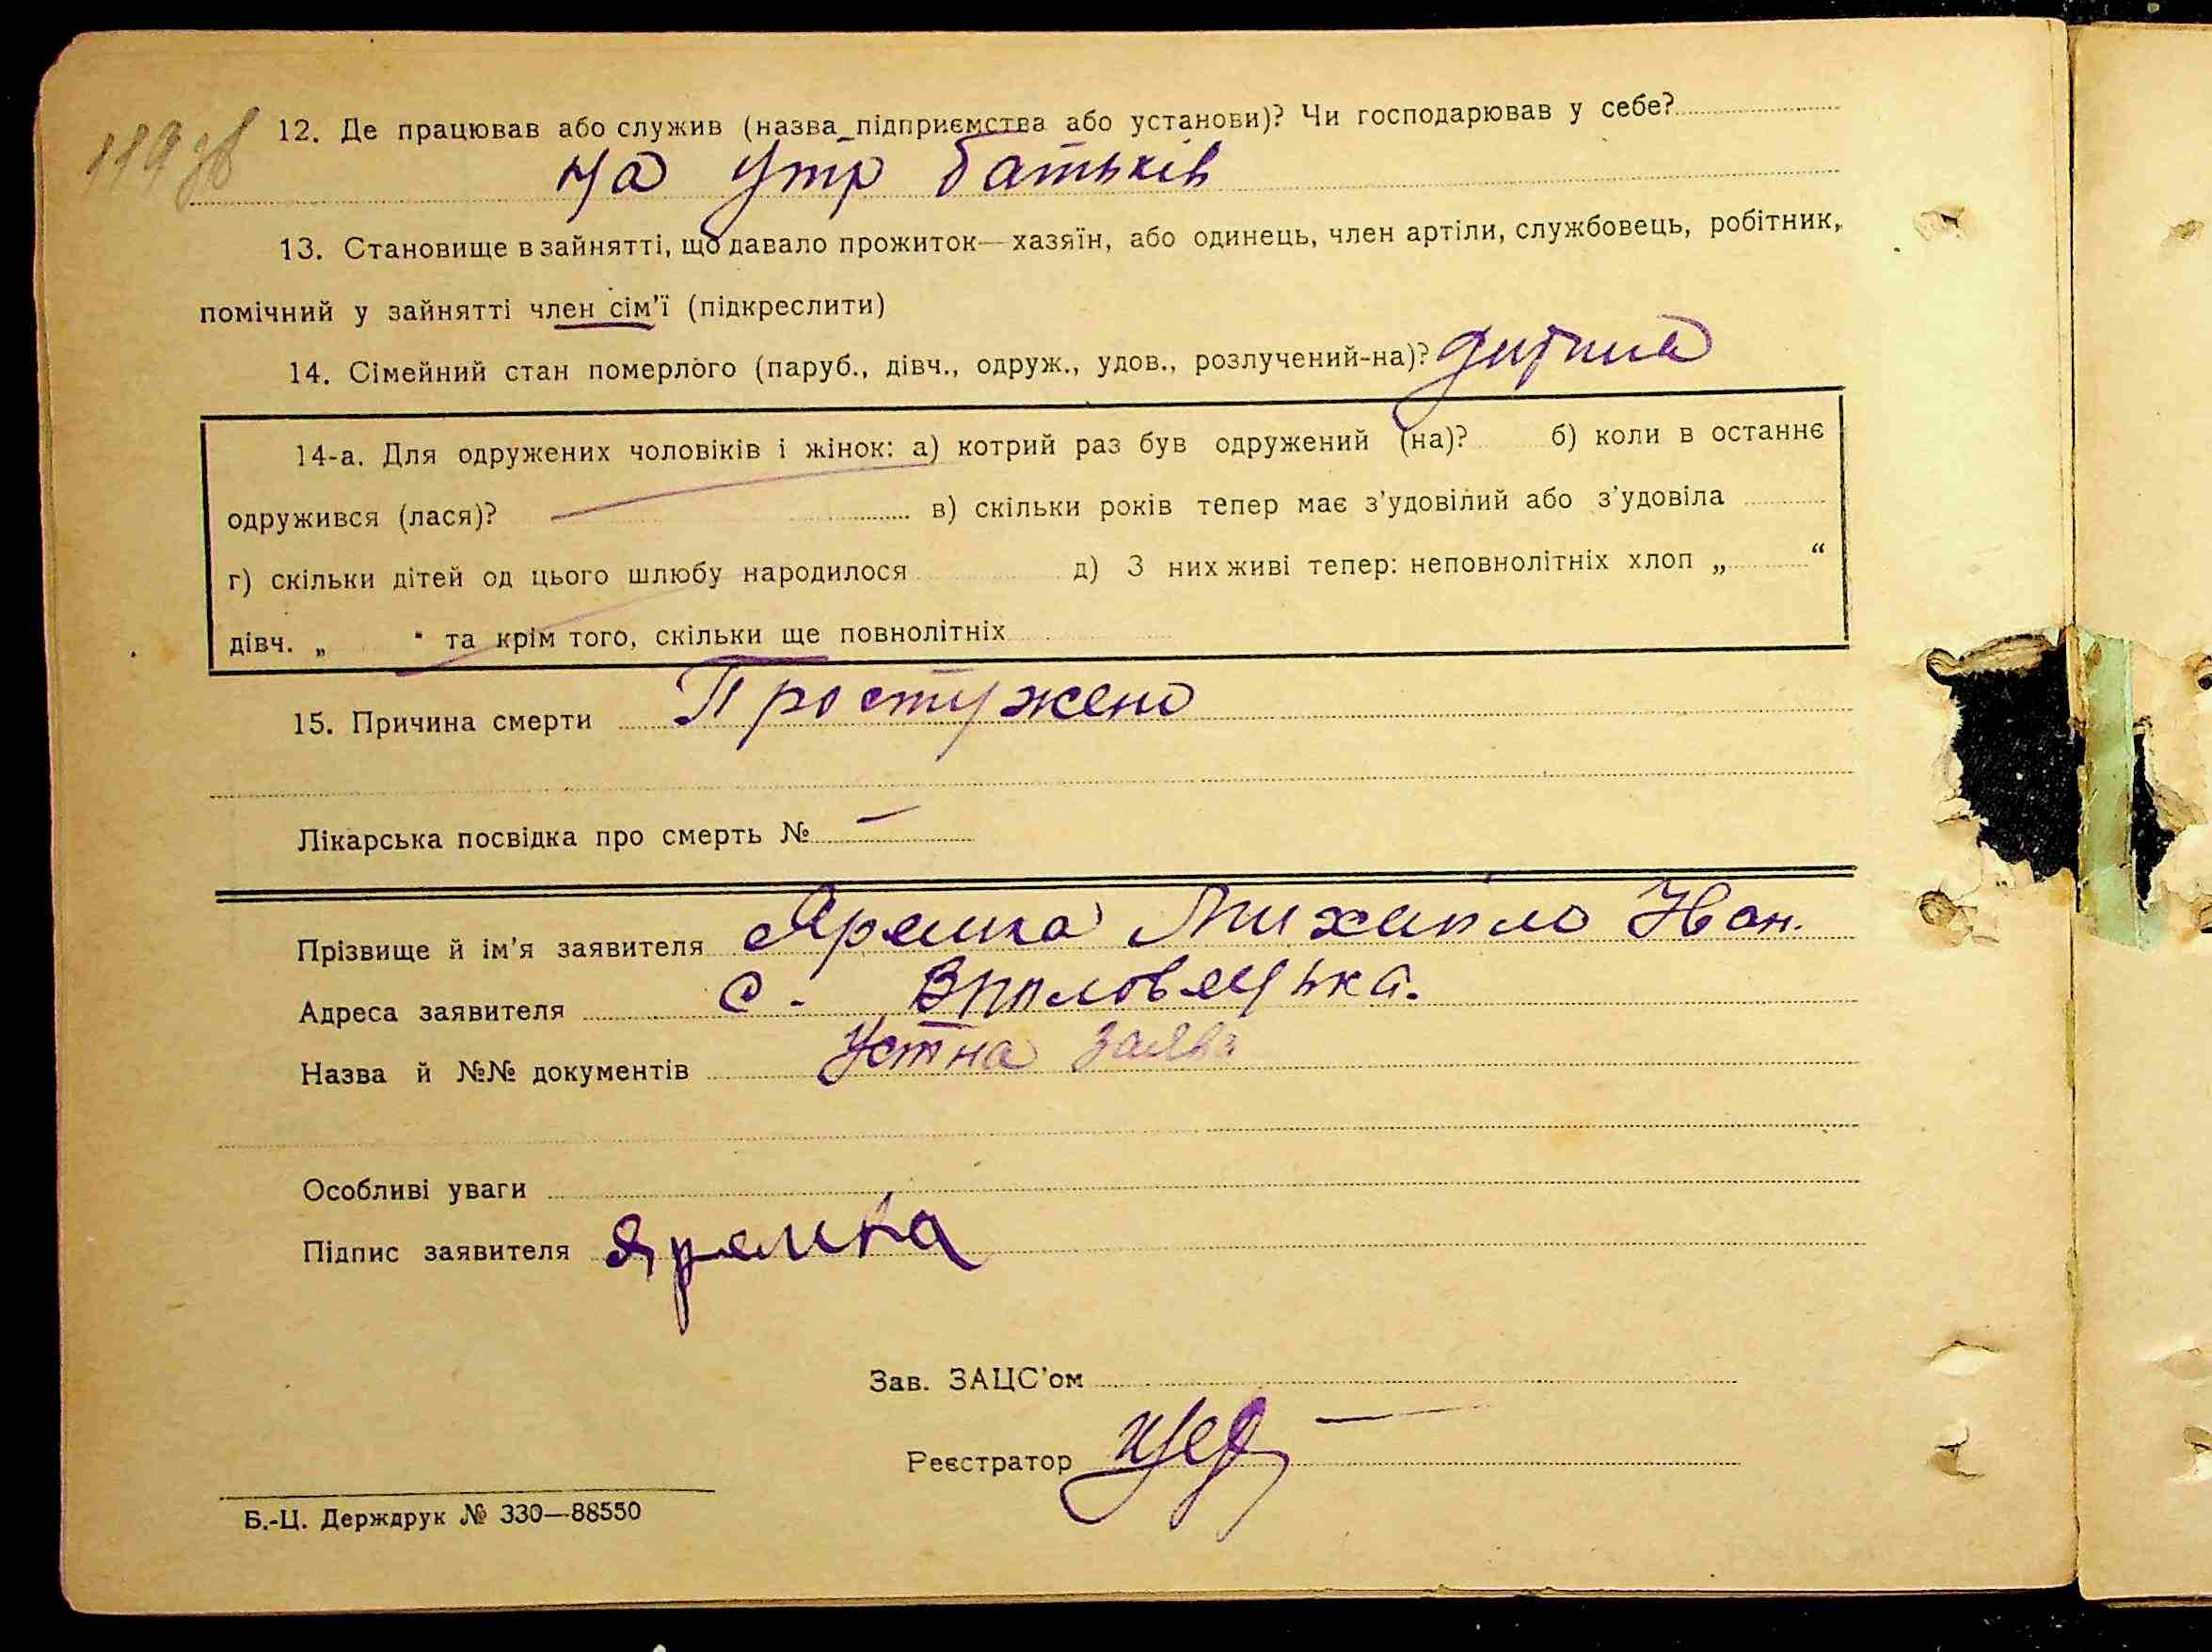 119 зв
12. Де працював або служив (назва підприємства або установи)? Чи господарював у себе?
на утр батьків
13. Становище в зайнятті, що давало прожиток—хазяїн, або одинець, член артіли, службовець, робітник,
помічний у зайнятті член сім'ї (підкреслити)
14. Сімейний стан померлого (паруб., дівч., одруж., удов., розлучений-на)? дитина
14-а. Для одружених чоловіків і жінок: а) котрий раз був одружений (на)? б) коли в останнє
одружився (лася)? в) скільки років тепер має з'удовілий або з'удовіла
г) скільки дітей од цього шлюбу народилося д) З них живі тепер: неповнолітніх хлоп „ “
дівч. „ “ та крім того, скільки ще повнолітніх
15. Причина смерти Простужено
Лікарська посвідка про смерть № —
Прізвище й ім'я заявителя Яремка Михайло Иван.
Адреса заявителя с.
Назва й №№ документів Устна заява
Особливі уваги
Підпис заявителя Яремка
Зав. ЗАЦС'ом
Реєстратор
Б.-Ц. Держдрук № 330—88550